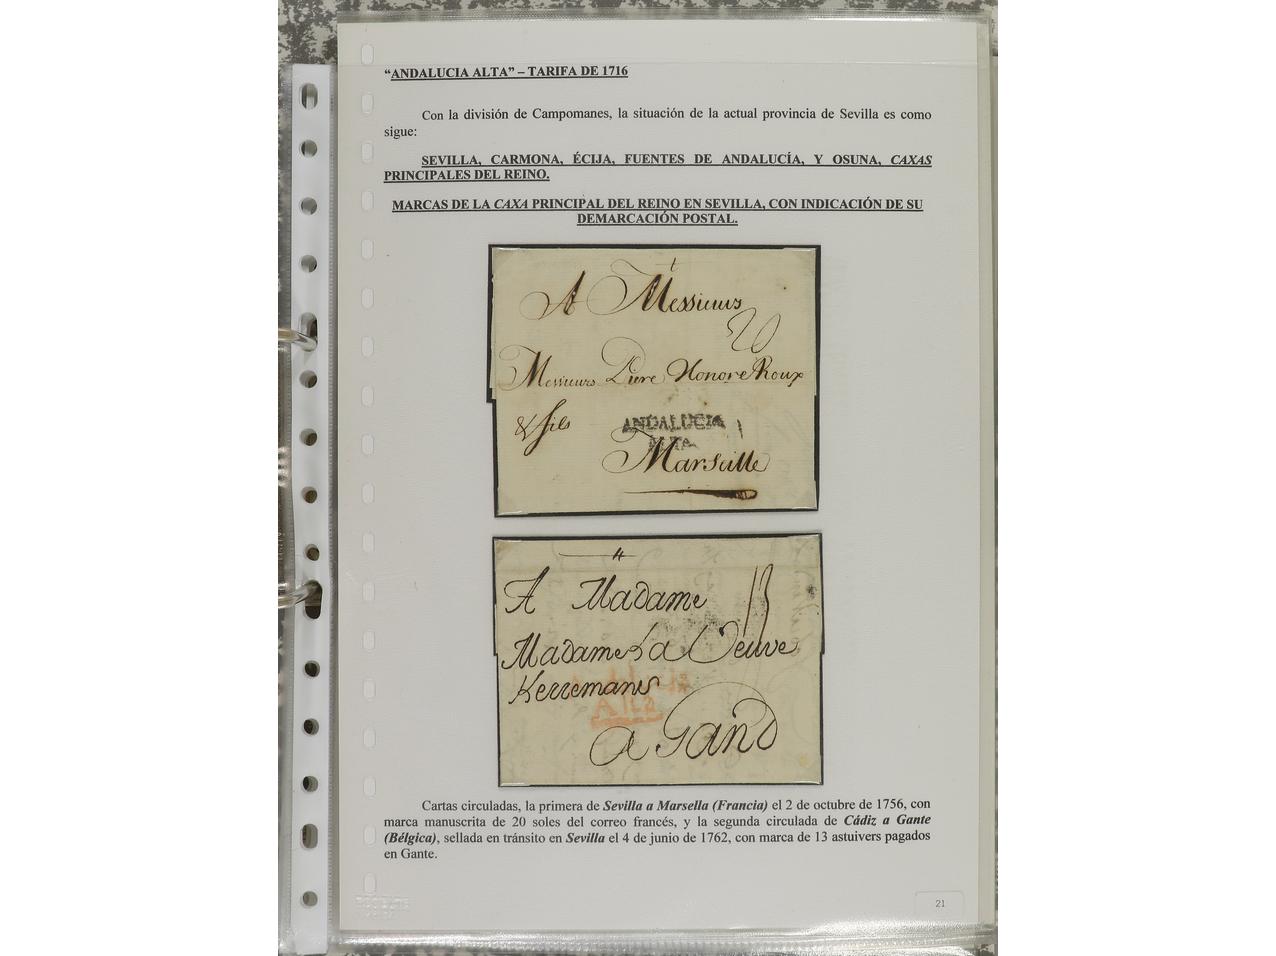 “ANDALUCIA ALTA” – TARIFA DE 1716
Con la división de Campomanes, la situación de la actual provincia de Sevilla es como
sigue:
SEVILLA, CARMONA, ÉCIJA, FUENTES DE ANDALUCÍA, Y OSUNA, CAXAS
PRINCIPALES DEL REINO.
MARCAS DE LA CAXA PRINCIPAL DEL REINO EN SEVILLA, CON INDICACIÓN DE SU
DEMARCACIÓN POSTAL.
A Messieurs
20
Messieurs Piere Honore Roux
& fils
ANDALUCIA
ALTA
Marseille
A Madame
13
Madame La Veuve
Kerremans
Alta
a Gand
Cartas circuladas, la primera de Sevilla a Marsella (Francia) el 2 de octubre de 1756, con
marca manuscrita de 20 soles del correo francés, y la segunda circulada de Cádiz a Gante
(Bélgica), sellada en tránsito en Sevilla el 4 de junio de 1762, con marca de 13 astuivers pagados
en Gante.
21